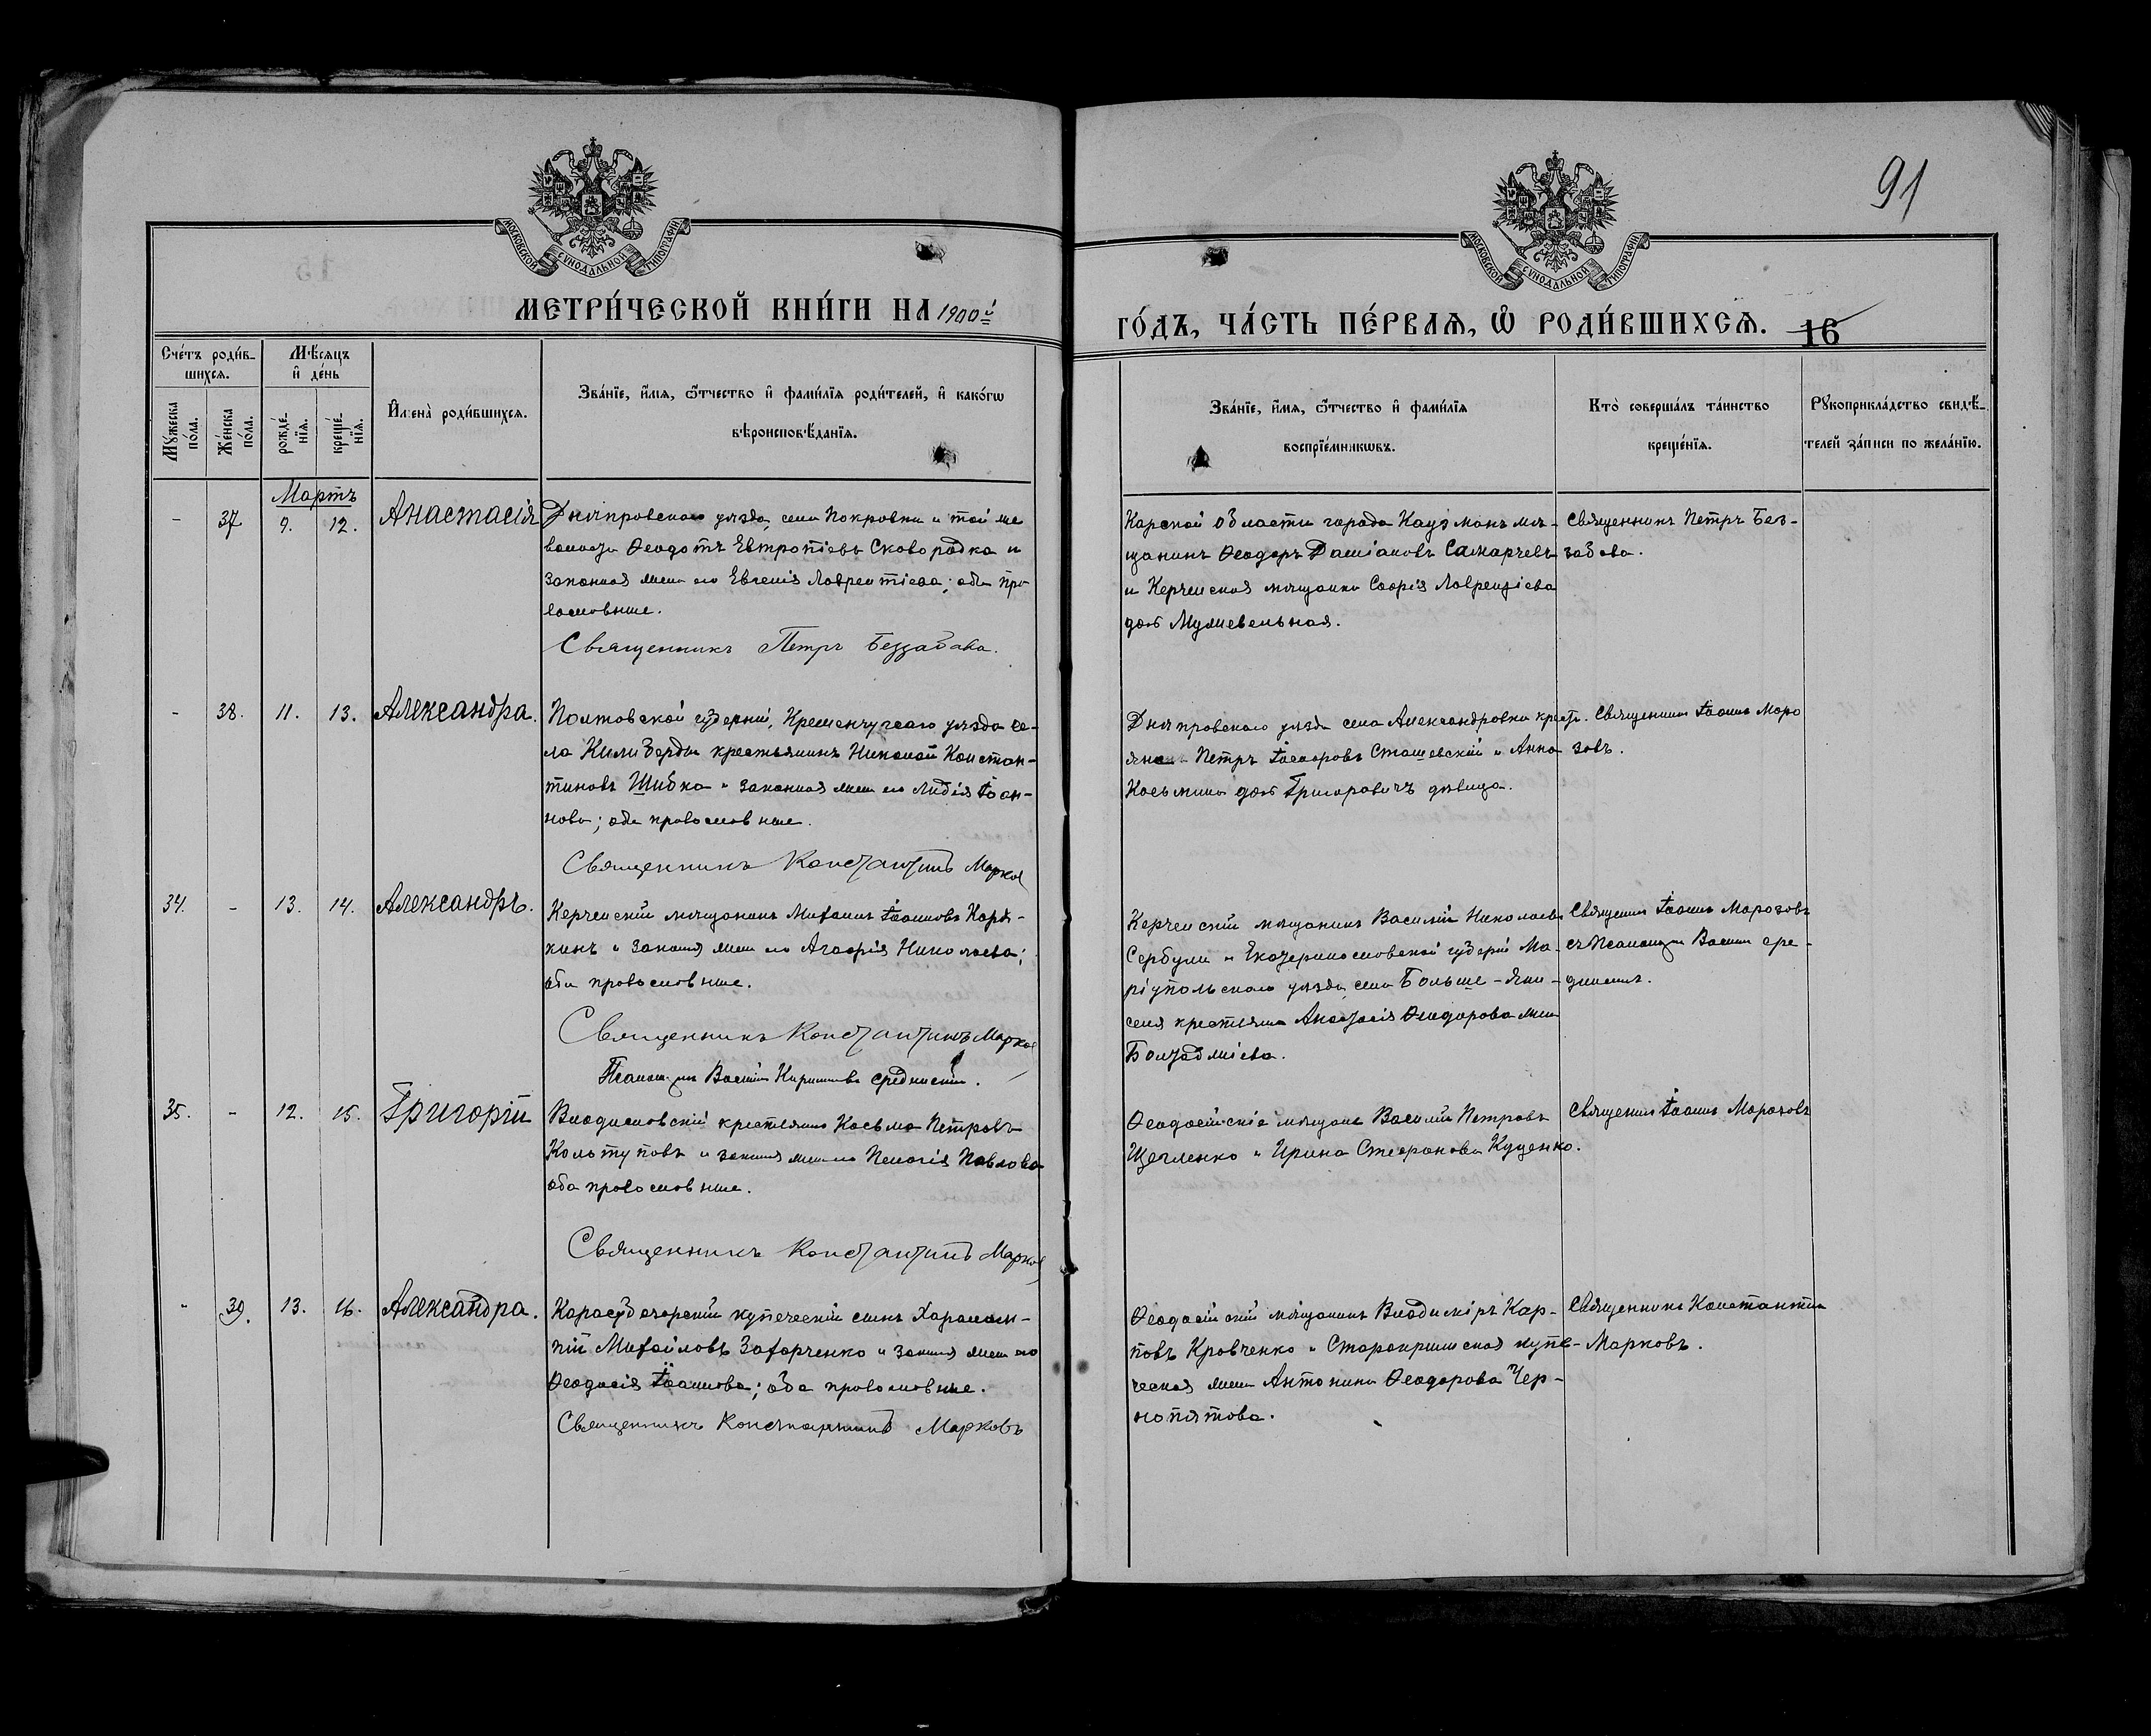 91
МОСКОВСКОЙ СѴНОДАЛЬНОЙ ТИПОГРАФІИ
МОСКОВСКОЙ СѴНОДАЛЬНОЙ ТИПОГРАФІИ
МЕТРИ́ЧЕСКОЙ КНИ́ГИ НА 1900й
ГО́ДЪ, ЧА́СТЬ ПЕ́РВАѦ, Ѽ РОДИ́ВШИХСѦ. 16
Сче́тъ роди́в-
шихсѧ.
Мѣ́сѧцъ
и҆ де́нь
Мꙋ́жеска
по́ла.
Же́нска
по́ла.
рожде́-
нїѧ.
креще́-
нїѧ.
И҆мена̀ роди́вшихсѧ.
Зва́нїе, и҆́мѧ, ѻ҆́тчество и҆ фамі́лїѧ роди́телей, и҆ како́гѡ
вѣроисповѣ́данїѧ.
Зва́нїе, и҆́мѧ, ѻ҆́тчество и҆ фамі́лїѧ
воспрїе́мникѡвъ.
Кто̀ соверша́лъ та́инство
креще́нїѧ.
Рꙋкоприкла́дство свидѣ́-
телей за́писи по жела́нїю.
Мартъ
- 37 9. 12. Анастасія
Днѣпровскаго уѣзда, села Покровки и той же
волости Ѳеодотъ Евтропіевъ Сковородка и
законная жена его Евгенія Лаврентіева; оба пра-
вославные.
Священникъ Петръ Беззабава.
Карской области города Кагызманъ мѣ-
щанинъ Ѳеодоръ Даміановъ Самарчевъ
и Керченская мѣщанка Софія Лаврентіева
дочь Мулиевельная.
Священникъ Петръ Без-
забава.
- 38. 11. 13. Александра.
Полтавской губерніи, Кременчугскаго уѣзда се-
ла Кили Берды крестьянинъ Николай Констан-
тиновъ Шибка и законная жена его Лидія Іоан-
нова; оба православные.
Священникъ Константинъ Марков
Днѣпровскаго уѣзда села Александровки крест.
Петръ Ѳеодоровъ Сташевскій и Анна
Косьмина дочь Григоровичъ дѣвица.
Священникъ Іоаннъ Моро
зовъ.
34. - 13. 14. Александръ.
Керченскій мѣщанинъ Михаилъ Іоанновъ Коря-
кинъ и законная жена его Агафія Николаева;
оба православные.
Священникъ Константинъ Марков
Псаломщикъ Василій Срединскій.
Керченскій мѣщанинъ Василій Николаевъ
Сербули и Екатеринославской губерніи Ма-
ріупольскаго уѣзда, села Больше-Яни-
соля крестьянка Анастасія Ѳеодорова жена
Священникъ Іоаннъ Морозовъ
съ псаломщ. Васил. Сре-
динскимъ.
35. - 12. 15. Григорій
Владиславовскій крестьянинъ Косьма Петровъ
Колотуповъ и законная жена его Пелагія Павлова
оба православные.
Священникъ Константинъ Марков
Ѳеодосійскіе мѣщане Василій Петровъ
Щегленко и Ирина Стефанова Куценко.
Священникъ Іоаннъ Морозовъ
- 39. 13. 16. Александра.
Карасубазарскій купеческій сынъ Харалам-
пій Михайловъ Захарченко и законная жена его
Ѳеодосія Іоаннова; оба православные.
Священникъ Константинъ Марковъ
Ѳеодосійскій мѣщанинъ Владиміръ Кар-
повъ Кравченко и Старокрымская купе-
ческая жена Антонина Ѳеодорова Чер-
нопятова.
Священникъ Константинъ
Марковъ.